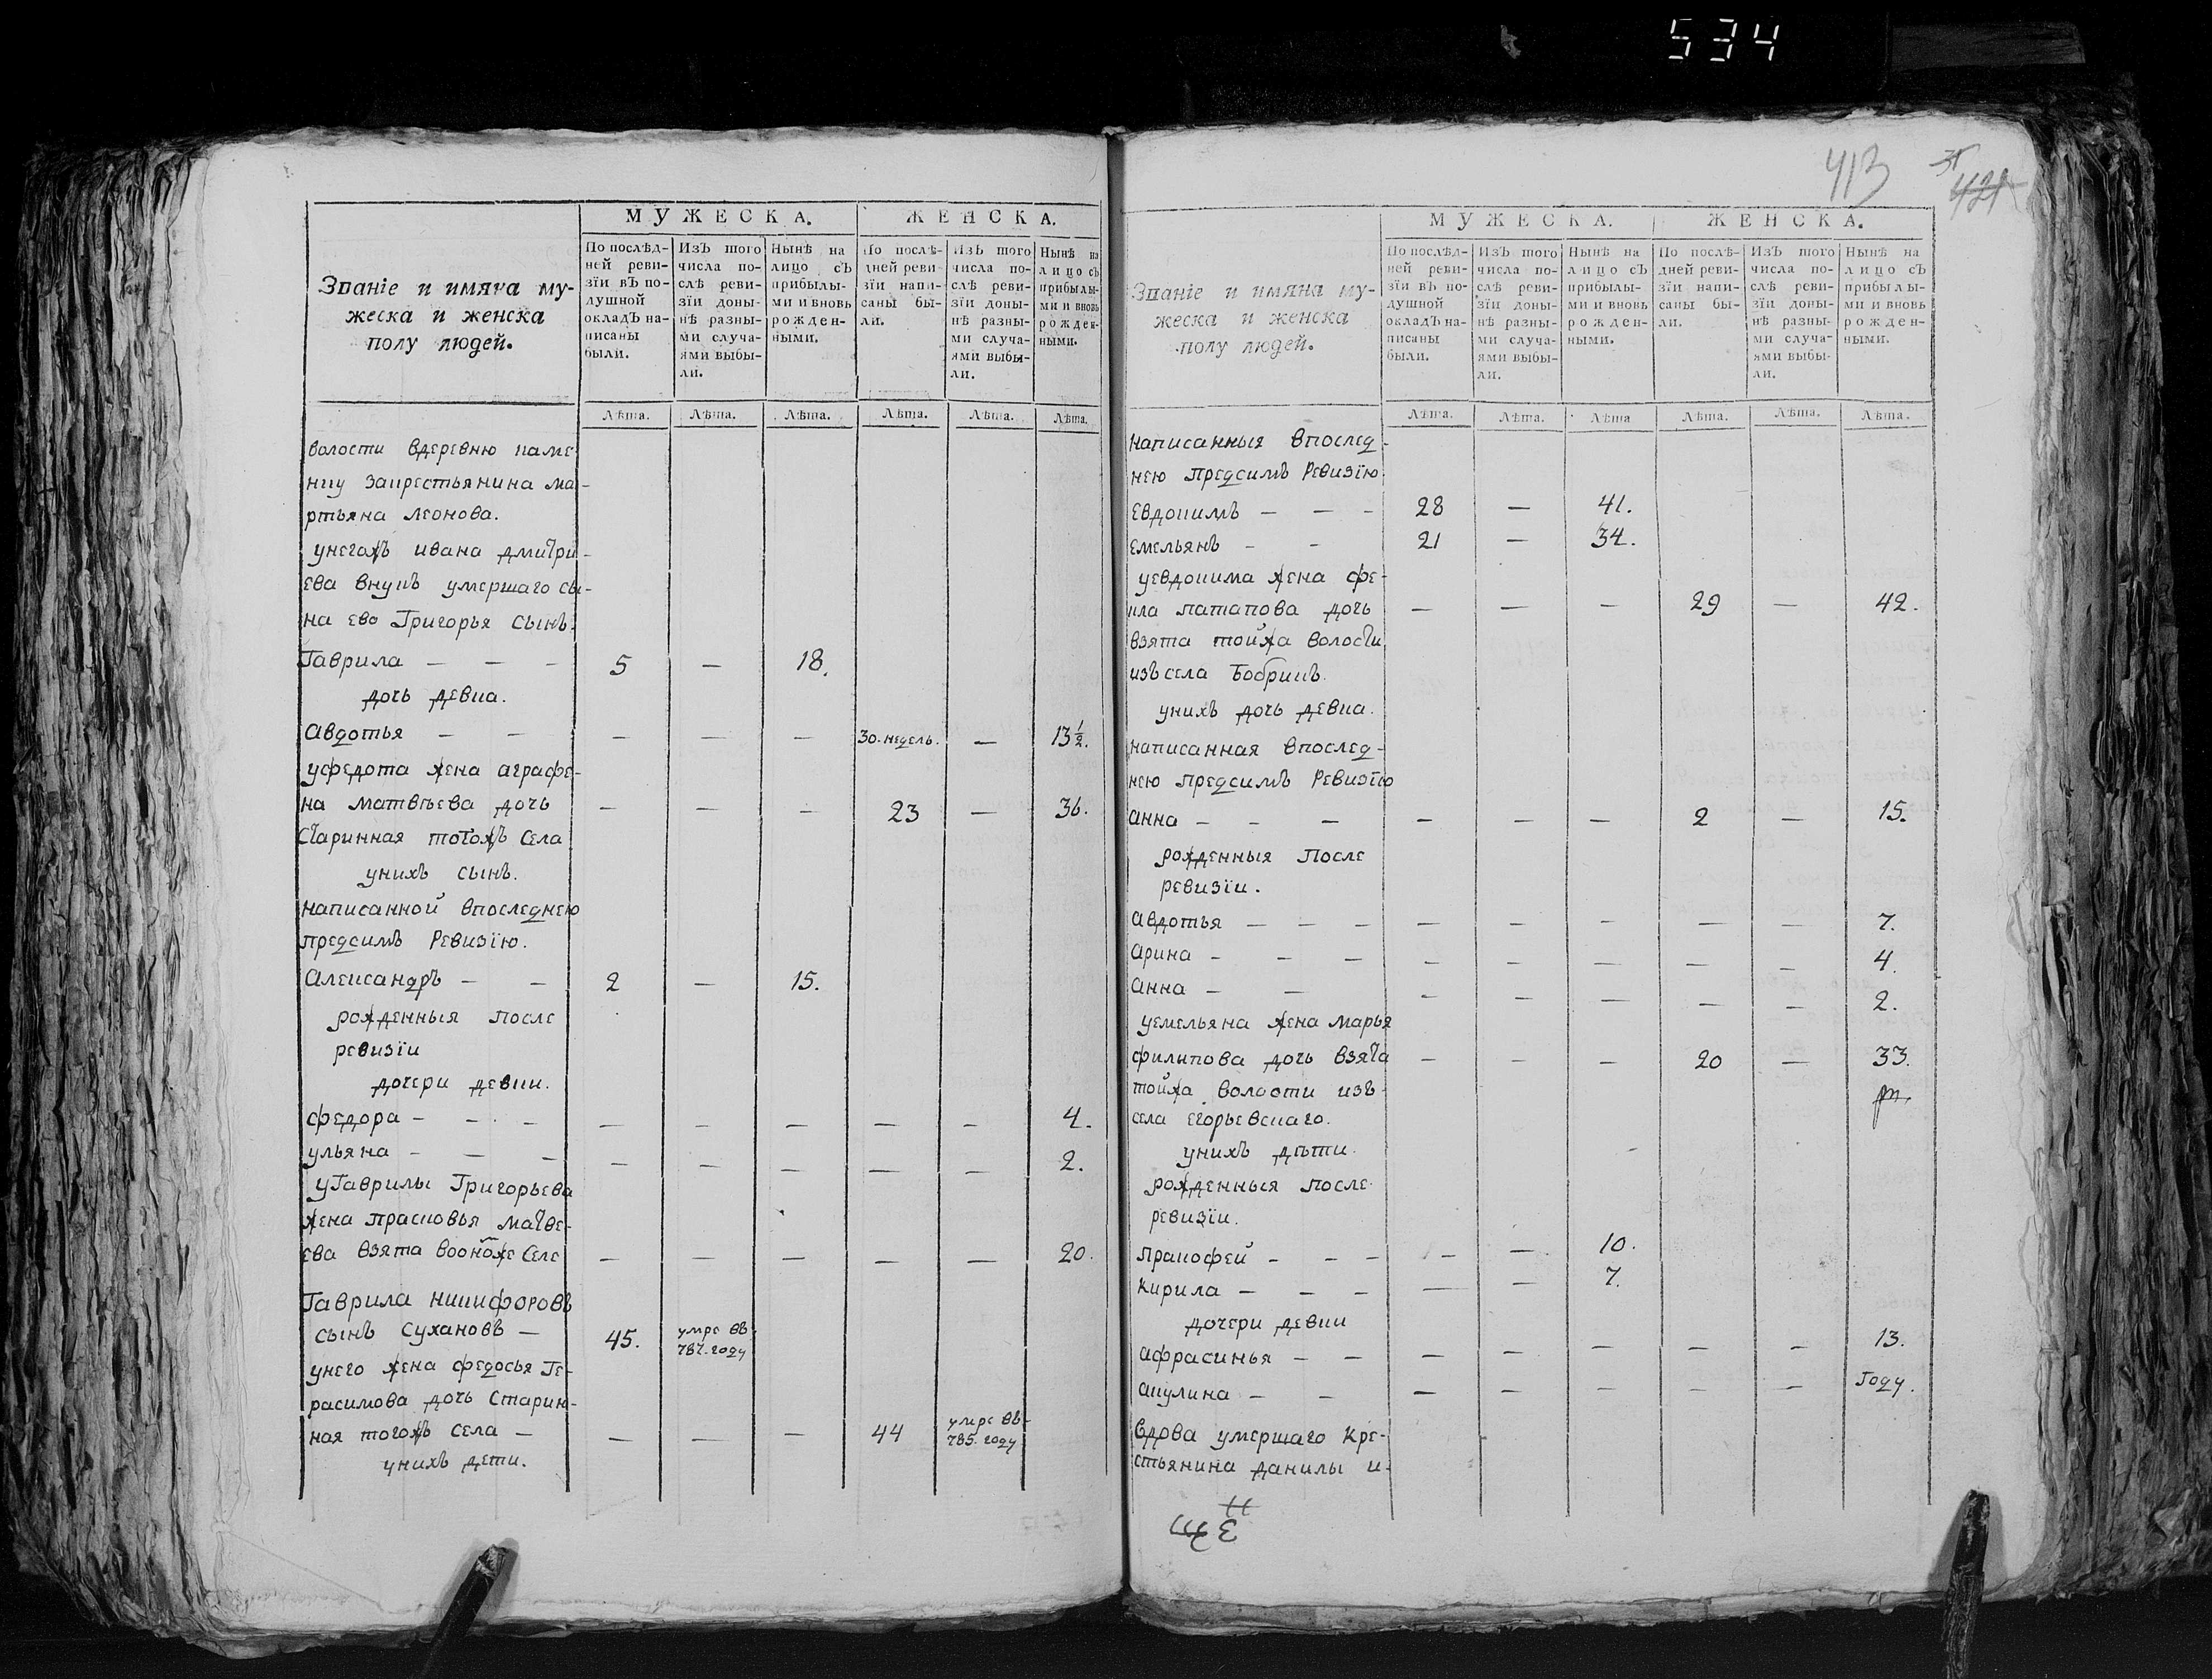 534
МУЖЕСКА. ЖЕНСКА.
Званіе и имяна му-
жеска и женска
полу людей.
По послѣд-
ней реви-
зїи вЪ по-
душной
окладЪ на-
писаны
были.
ИзЪ того
числа по-
слѣ реви-
зїи доны-
нѣ разны-
ми случа-
ями выбы-
ли.
Нынѣ на
лицо сЪ
прибылы-
ми и вновь
рожден-
ными.
По послѣ-
дней реви-
зїи напи-
саны бы-
ли.
ИзЪ того
числа по-
слѣ реви-
зїи доны-
нѣ разны-
ми случа-
ями выбы-
ли.
Нынѣ на
лицо сЪ
прибылы-
ми и вновь
рожден-
ными.
Лѣта. Лѣта. Лѣта. Лѣта. Лѣта. Лѣта.
волости вдеревню каме
нку закрестьянина ма-
ртьяна леонова.
унегожъ ивана дмитри-
ева внукъ умершаго сы-
на ево Григорья сынъ.
Гаврила — — — 5 — 18.
дочь девка.
Авдотья — — — — — 30. недель. — 13 1/2.
уфедота жена аграфе-
на матвѣева дочь — — — 23 — 36.
старинная тогожъ села
унихъ сынъ.
написанной впоследнею
предсимъ Ревизїю.
Александръ — — 2 — 15.
рожденныя после
ревизїи
дочери девки.
федора — — — — — — — — 4.
ульяна — — — — — — — — 2.
уГаврилы Григорьева
жена прасковья матве-
ева взята воономже селе — — — — — 20.
Гаврила никифоровъ
сынъ сухановъ — 45. умре въ
787. году
унего жена федосья Ге-
расимова дочь старин-
ная тогожъ села — — — — 44 умре въ
785. году
унихъ дети.
413
421
МУЖЕСКА. ЖЕНСКА.
Званіе и имяна му-
жеска и женска
полу людей.
По послѣд-
ней реви-
зїи вЪ по-
душной
окладЪ на-
писаны
были.
ИзЪ того
числа по-
слѣ реви-
зїи доны-
нѣ разны-
ми случа-
ями выбы-
ли.
Нынѣ на
лицо сЪ
прибылы-
ми и вновь
рожден-
ными.
По послѣ-
дней реви-
зїи напи-
саны бы-
ли.
ИзЪ того
числа по-
слѣ реви-
зїи доны-
нѣ разны-
ми случа-
ями выбы-
ли.
Нынѣ на
лицо сЪ
прибылы-
ми и вновь
рожден-
ными.
Лѣта. Лѣта. Лѣта Лѣта. Лѣта. Лѣта.
написанныя впослед-
нею предсимъ Ревизїю
Евдокимъ — — — 28 — 41.
емельянъ — — 21 — 34.
уевдокима жена фе-
кла патапова дочь — — — 29 — 42.
взята тойжа волости
изъ села Бобрикъ.
унихъ дочь девка.
написанная впослед-
нею предсимъ Ревизїю
анна — — — — — — 2 — 15.
рожденныя После
ревизїи.
авдотья — — — — — — — — 7.
арина — — — — — — — — 4.
анна — — — — — — — 2.
уемельяна жена марья
филипова дочь взята — — — 20 — 33.
тойжа волости изъ
села егорьевскаго.
унихъ дѣти.
рожденныя После
ревизїи.
пракофей — — — — — 10.
кирила — — — — — 7.
дочери девки
афрасинья — — — — — — — 13.
акулина — — — — — — — Году.
вдова умершаго кре-
стьянина данилы и-